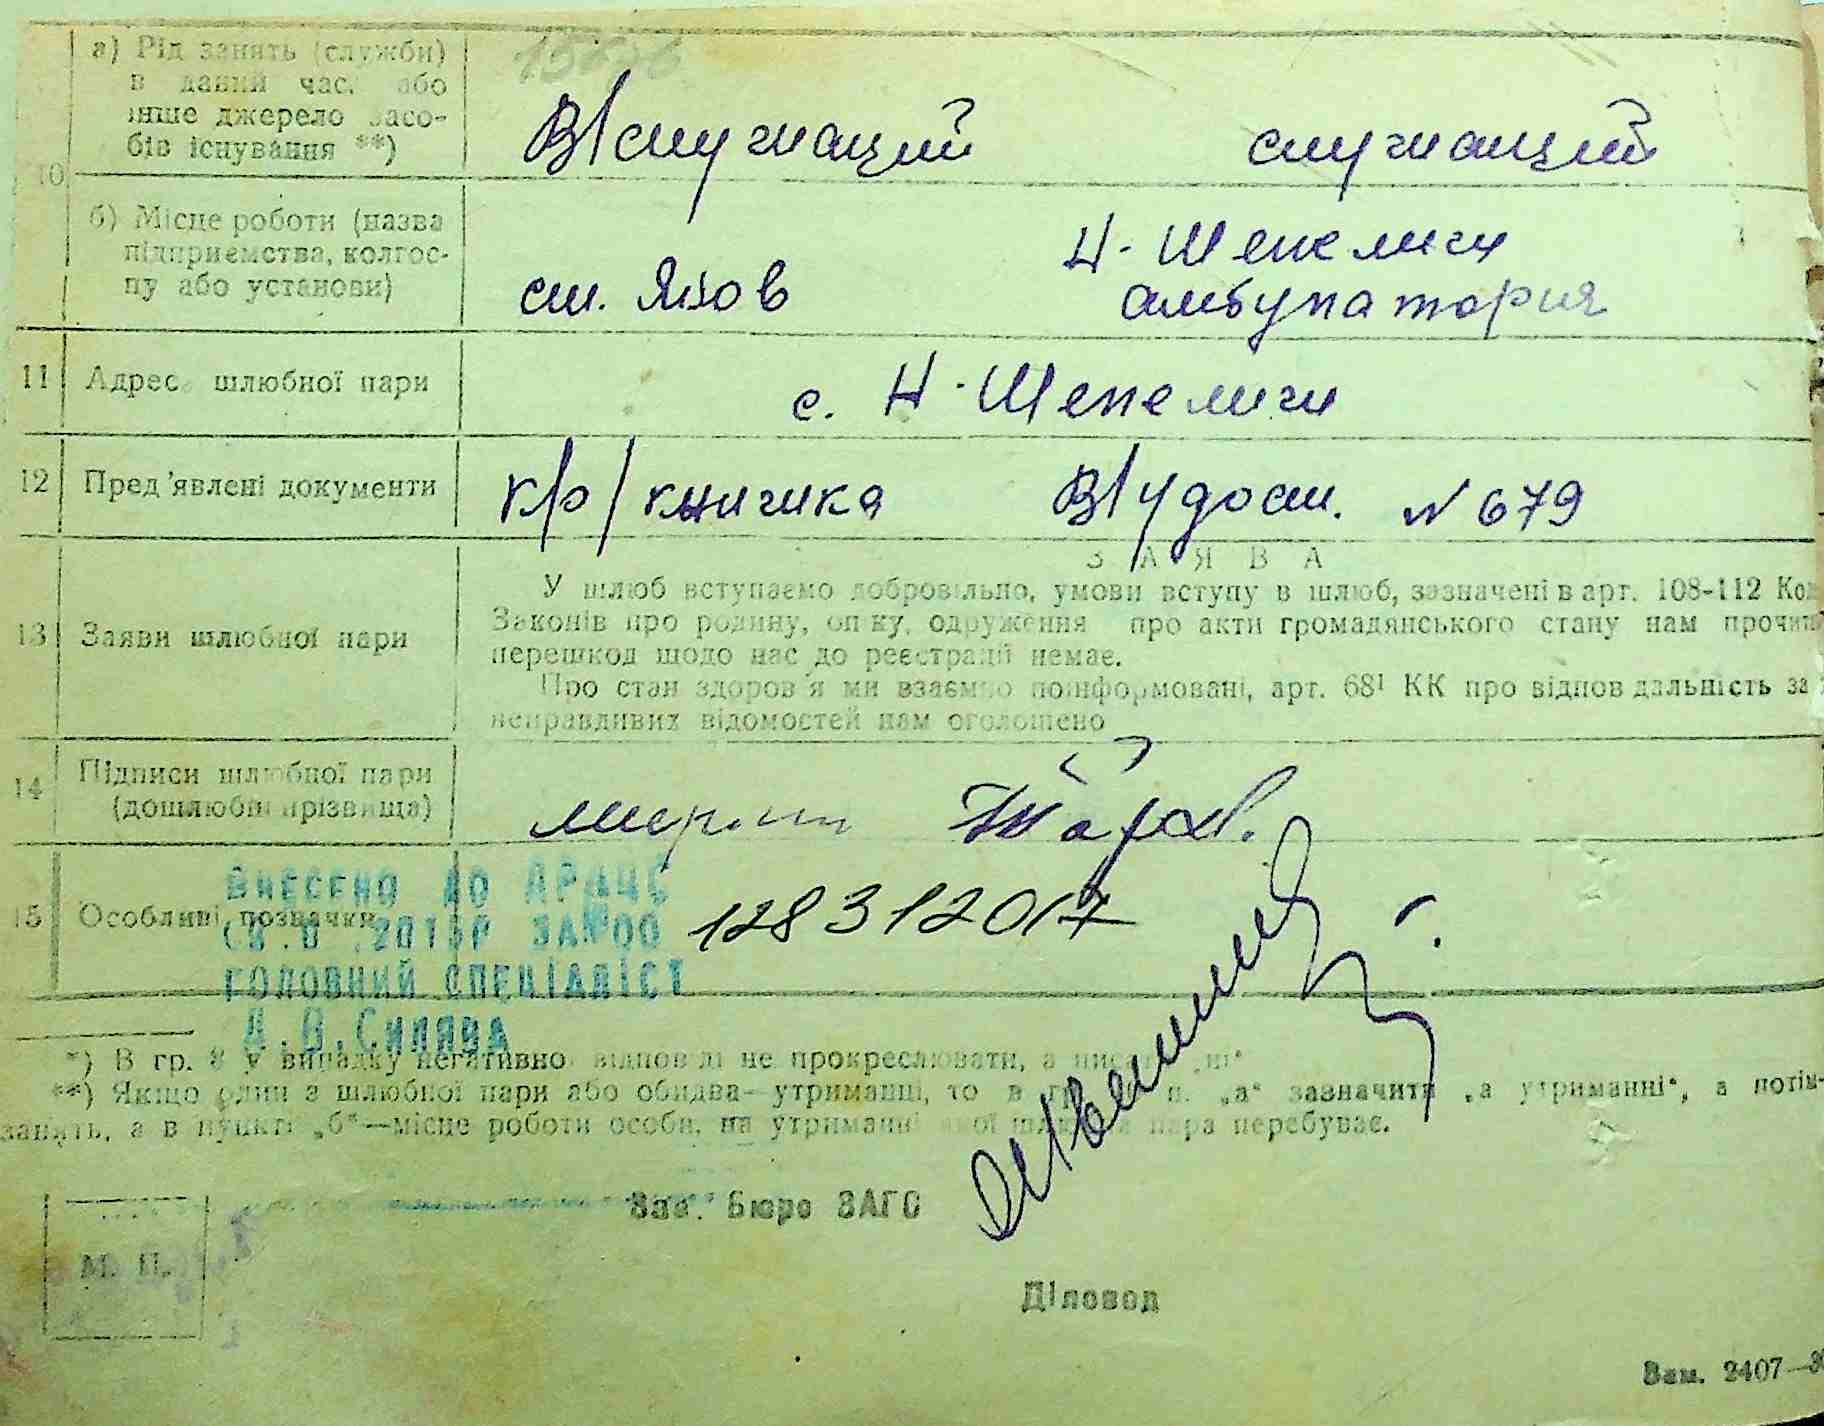 а) Рід занять (служби)
в даний час, або
інше джерело засо-
бів існування **)
В/служащий служащий
10
б) Місце роботи (назва
підприємства, колгос-
пу або установи)
ст. Янов
Н-Шепеличи
амбулатория
11 Адреса шлюбної пари
с. Н-Шепеличи
12 Пред'явлені документи
кр/книжка В/удост. № 679
З А Я В А
13 Заяви шлюбної пари
У шлюб вступаємо добровільно, умови вступу в шлюб, зазначені в арт. 108-112
Законів про родину, опіку, одруження про акти громадянського стану нам
перешкод щодо нас до реєстрації немає.
Про стан здоров'я ми взаємно поінформовані, арт. 68¹ КК про відповідальність за
неправдивих відомостей нам оголошено
14 Підписи шлюбної пари
(дошлюбні прізвища)
15 Особливі позначки
ВНЕСЕНО ДО ДРАЦС
ЗА №00
128312017
ГОЛОВНИЙ СПЕЦІАЛІСТ
*) В гр. 8 у випадку негативної відповіді не прокреслювати, а писати „ні“
**) Якщо один з шлюбної пари або обидва—утриманні, то в п. „а“ зазначити „а утриманні“, а потім
занять, а в пункті „б“—місце роботи особи, на утриманні якої шлюбна пара перебуває.
Зав. Бюро ЗАГС
М. П.
Діловод
Зам. 2407